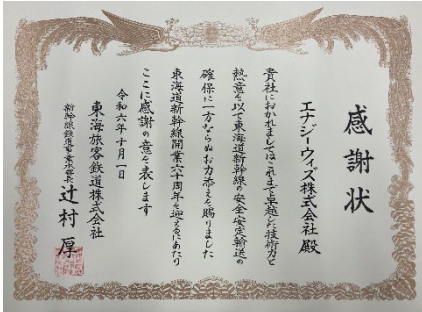 感謝状
エナジーウィズ株式会社 殿
貴社におかれましてはこれまで卓越した技術力と
熱意を以て東海道新幹線の安全安定輸送の
確保に一方ならぬお力添えを賜りました
東海道新幹線開業六十周年を迎えるにあたり
ここに感謝の意を表します
令和六年十月一日
東海旅客鉄道株式会社
新幹線鉄道事業本部長 辻村 厚